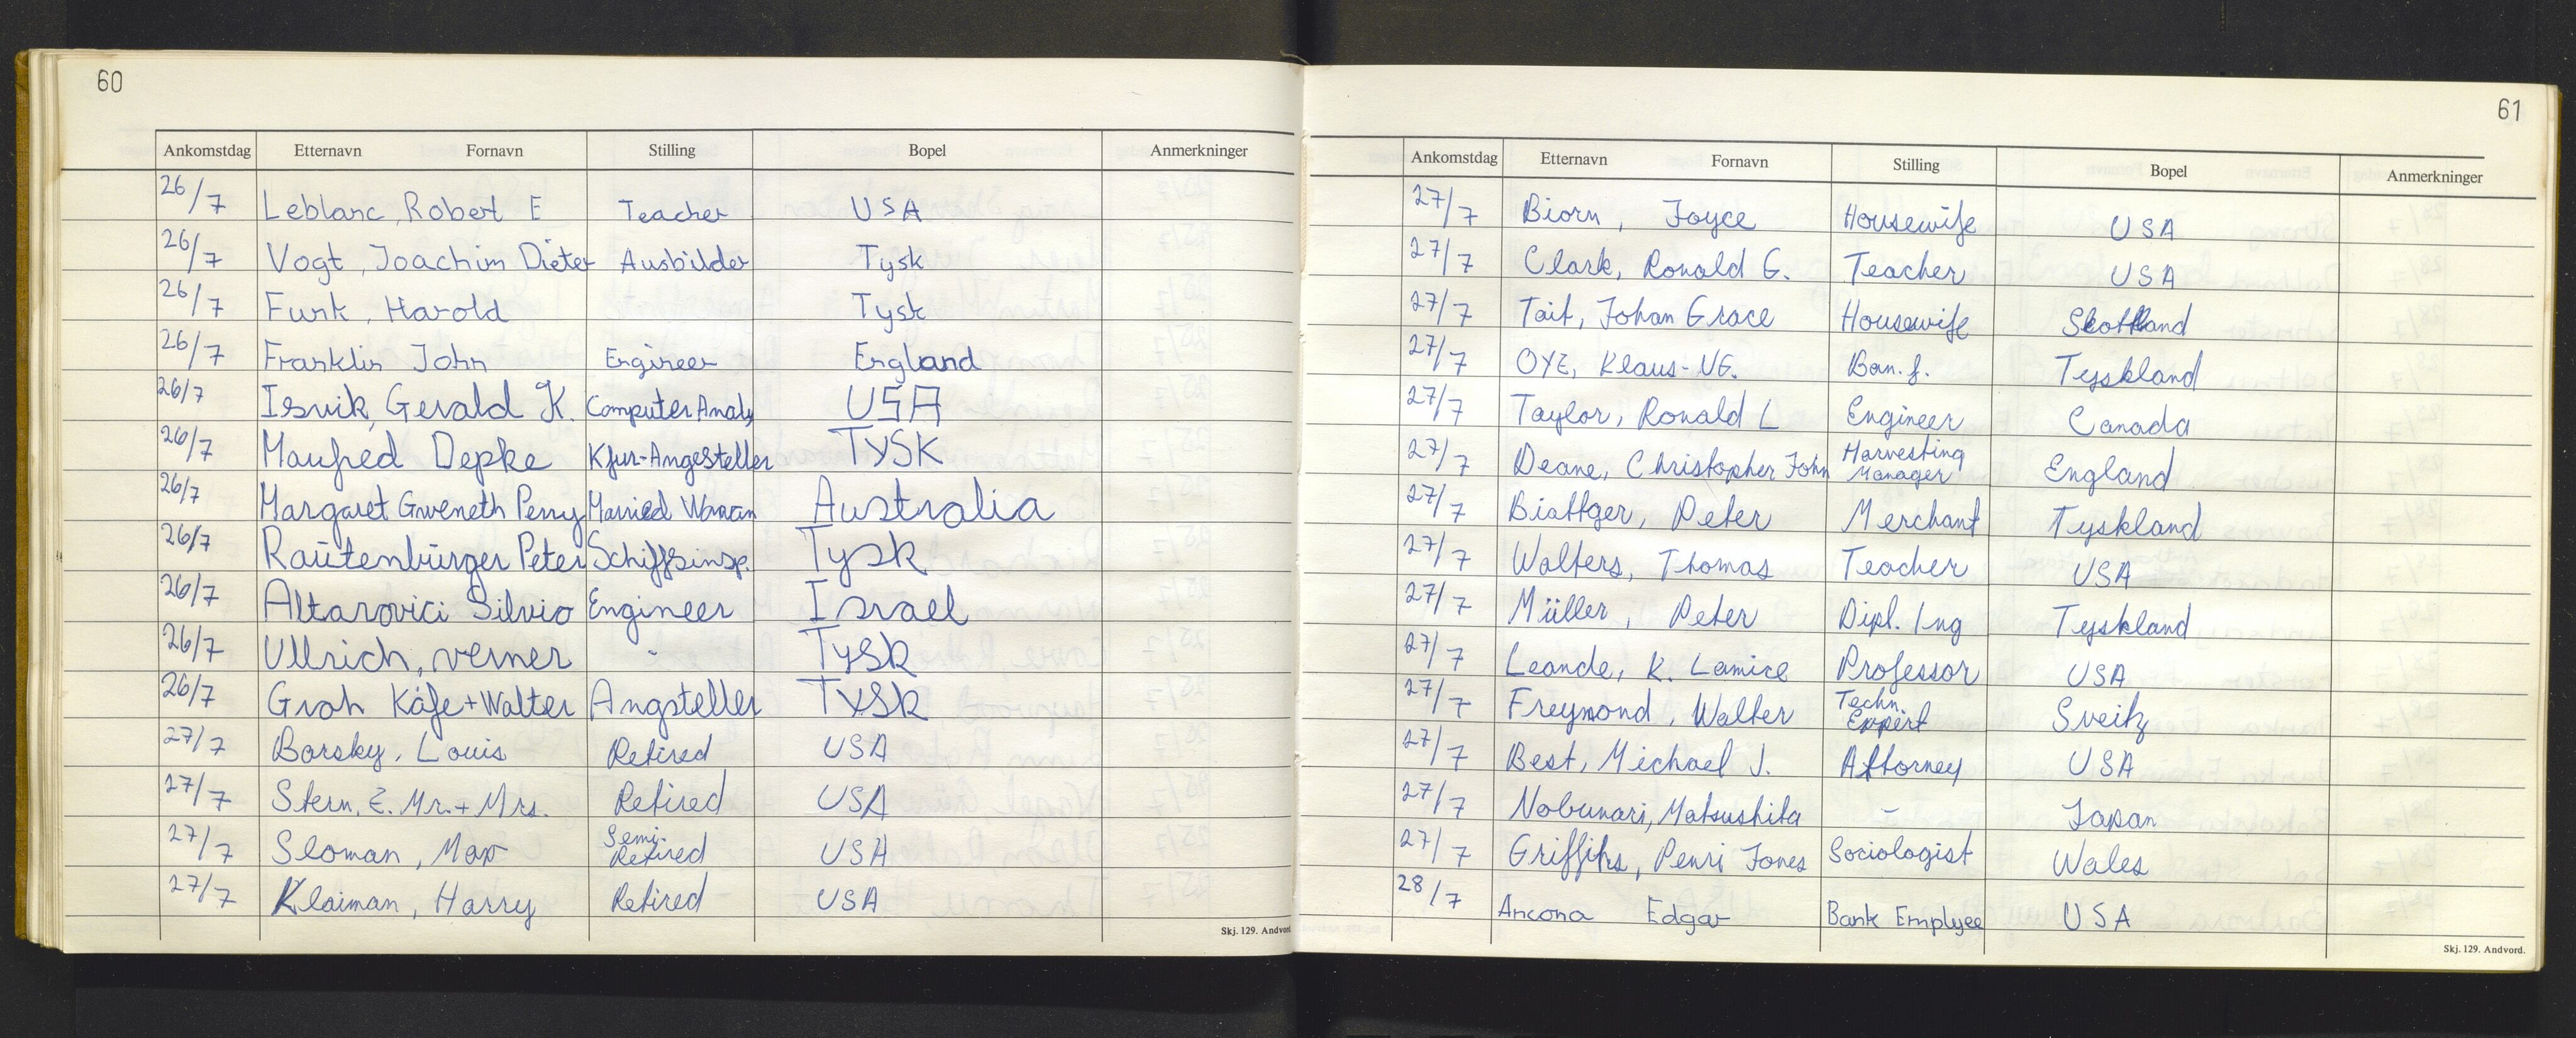 60
Ankomstdag Etternavn Fornavn Stilling Bopel Anmerkninger
26/7 Leblanc, Robert E Teacher USA
26/7 Vogt, Joachim Dieter Ausbilder Tysk
26/7 Funk, Harold Tysk
26/7 Franklin John Engineer England
26/7 Isvik, Gerald K. Computer Analy USA
26/7 Manfred Depke Kfur-Angesteller TYSK
26/7 Margaret Gweneth Perry Married Woman Australia
26/7 Rautenburger Peter Schiffsinsp. Tysk
26/7 Altarovici Silvio Engineer Israel
26/7 Ullrich, verner - Tysk
26/7 Groh Käfe + Walter Angsteller TYSK
27/7 Borsky, Louis Retired USA
27/7 Stern, E. Mr. + Mrs. Retired USA
27/7 Sloman, Max Semi-Retired USA
27/7 Klaiman, Harry Retired USA
Skj. 129. Andvord
61
Ankomstdag Etternavn Fornavn Stilling Bopel Anmerkninger
27/7 Biorn, Joyce Housewife USA
27/7 Clark, Ronald G. Teacher USA
27/7 Tait, Johan Grace Housewife Skottland
27/7 OYE, Klaus-UG. Ban. f. Tyskland
27/7 Taylor, Ronald L Engineer Canada
27/7 Deane, Christopher John Harvesting Manager England
27/7 Biattger, Peter Merchant Tyskland
27/7 Walters, Thomas Teacher USA
27/7 Müller, Peter Dipl. Ing Tyskland
27/7 Leande, K. Lamice Professor USA
27/7 Freymond, Walter Techn. Expert Sveitz
27/7 Best, Michael J. Attorney USA
27/7 Nobunari, Matsushita - Japan
27/7 Griffihs, Penri Jones Sociologist Wales
28/7 Ancona Edgar Bank Emplyee USA
Skj. 129. Andvord.